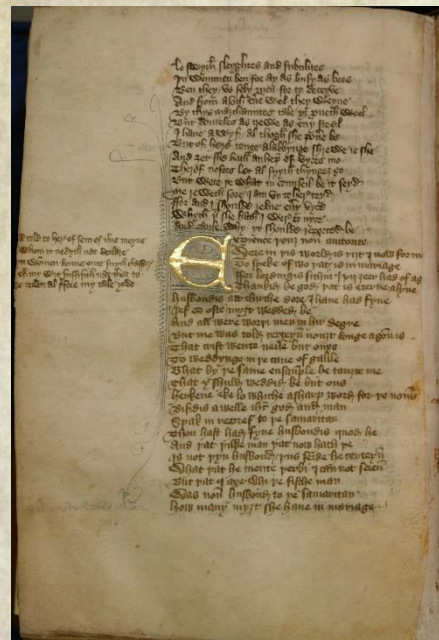 Lo swych sleyghtes and subtilites
In wommen ben for ay as busy as bees
Ben they us sely men for to deceyve
And from a soth evere wol they weyve
By thys marchauntes tale yt preveth weel
But douteles as trewe as eny steel
I have a wyf al thogh she povre be
But of here tonge a labbynge shrewe is she
And yet she hath an heep of vyces mo
Therof no fors let al swych thynges go
But wete ye what in conseil be it seyd
me reweth sore I am un to here teyd
ffor and I sholde rekne every vyce
Whych that she hath I were to nyce
And cause why yt sholde reported be
And told to here of som of this meyne
Of whom it nedyth not declare
Syn women konne oute swych chaffare
Ek my wit suffisith nat ther to
To tellen al wherfore my tale is do
Experience thouh non auctorite
Were in this world is riht y now for me
To speke of wo that is in mariage
ffor lordingis sithin I twelf yeer was of age
Thankid be god that is eterne alyve
husbondis atte chirche dore I have had fyve
yef so ofte myht weddid be
And all were worthi men in hir degre
But me was told certeyn nouht longe agon is
That crist wente nevir but onys
To weddynge in the cane of galile
That by the same ensample he tauhte me
That y schulde weddid be but ons
herkene eke lo whiche a sharp word for the nons
Bisidis a welle ihesu god and man
Spak in reproef to the samaritan
Thou hast had fyve husbondis quod he
And that ilke man that now hath the
Is not thyn husbond thus seide he certeyn
What that he mente therbi I can not seien
But that I axe whi the fifthe man
Was non husbond to the samaritan
how many myht she have in mariage